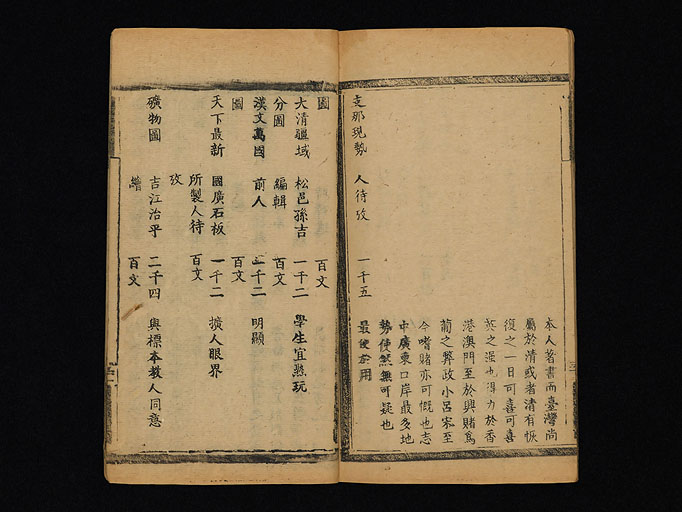 本人著書而臺灣尚
屬於清或者清有恢
復之一日可喜可喜
英之强也得力於香
港澳門至於興賭爲
葡之弊政小呂宋至
今嗜賭亦可慨也志
中廣東口岸最多地
勢使然無可疑也
支那現勢 人待攷 一千五 最便宜用
圖 百文
大清疆域 松邑孫吉 一千二 學生宜熟玩
分圖 編輯 百文
漢文萬國 前人 一千二 明顯
圖 百文
天下最新 國廣石板 一千二 擴人眼界
所製人待 百文
攷
礦物圖 吉江治平 二千四 與標本教人同意
繪 百文